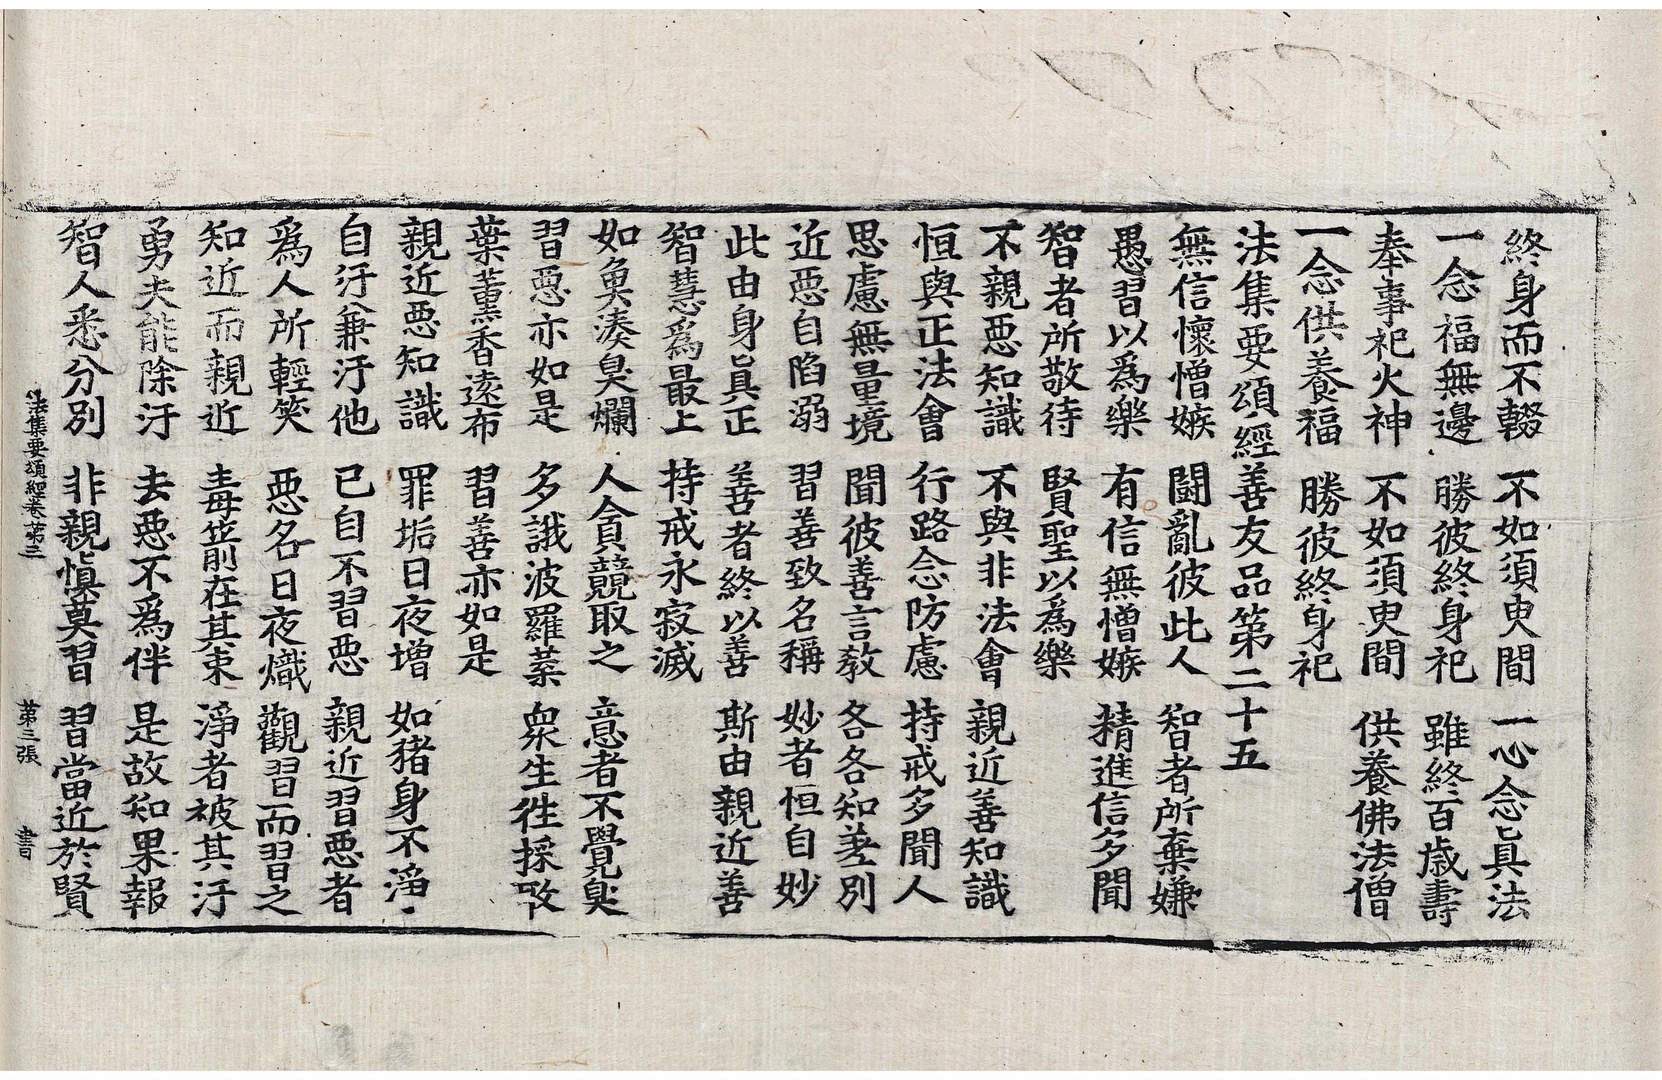 終身而不輟 不如須臾間 一心念眞法
一念福無邊 勝彼終身祀 雖終百歲壽
奉事祀火神 不如須臾間 供養佛法僧
一念供養福 勝彼終身祀
法集要頌經善友品第二十五
無信懷憎嫉 鬪亂彼此人 智者所棄嫌
愚習以爲樂 有信無憎嫉 精進信多聞
智者所敬待 賢聖以爲樂
不親惡知識 不與非法會 親近善知識
恒與正法會 行路念防慮 持戒多聞人
思慮無量境 聞彼善言教 各各知差別
近惡自陷溺 習善致名稱 妙者恒自妙
此由身眞正 善者終以善 斯由親近善
智慧爲最上 持戒永寂滅
如魚湊臭爛 人貪競取之 意者不覺臭
習惡亦如是 多誐波羅葉 衆生往採取
葉薰香遠布 習善亦如是
親近惡知識 罪垢日夜增 如猪身不淨
自汙兼汙他 已自不習惡 親近習惡者
爲人所輕笑 惡名日夜熾 觀習而習之
知近而親近 毒箭在其束 淨者被其汙
勇夫能除汙 去惡不爲伴 是故知果報
智人悉分別 非親愼莫習 習當近於賢
法集要頌經卷第三 第三張 書